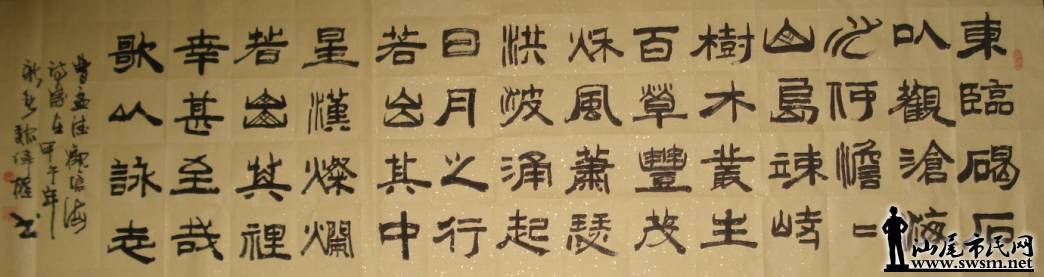 東臨碣石
以觀滄海
水何澹二
山島竦峙
樹木叢生
百草豐茂
秌風蕭瑟
洪波涌起
日月之行
若出其中
星漢燦爛
若出其裡
幸甚至哉
歌以詠志
曹孟德觀滄海
甲午年
汕尾市民网
www.swsm.net